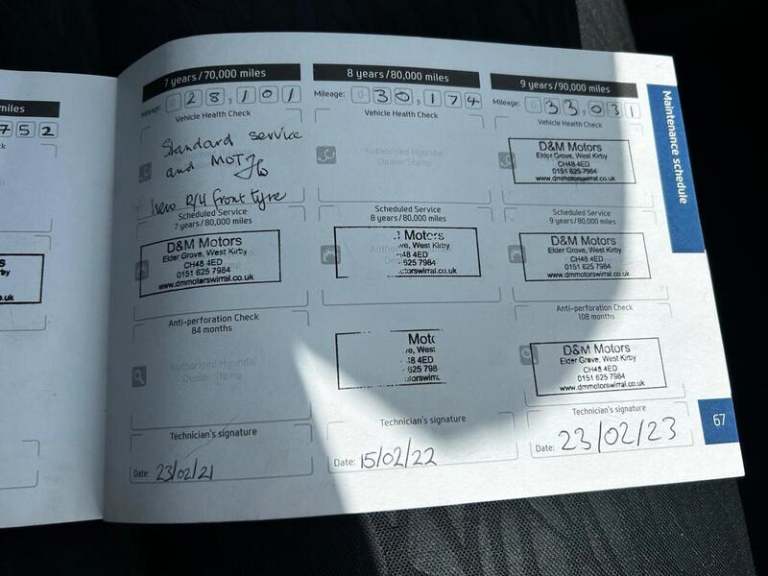 miles
752
ck
7 years/70,000 miles
Mileage: 028,101
Vehicle Health Check
Standard service
and MOT
new R/H front tyre
Scheduled Service
7 years/80,000 miles
D&M Motors
Elder Grove, West Kirby
CH48 4ED
0151 625 7984
www.dmmotorswirral.co.uk
Anti-perforation Check
84 months
Authorised Hyundai
Dealer Stamp
Technician's signature
Date: 23/02/21
8 years/80,000 miles
Mileage: 030,174
Vehicle Health Check
Authorised Hyundai
Dealer Stamp
Scheduled Service
8 years/80,000 miles
Motors
ve, West Kirby
48 4ED
625 7984
otorswirral.co.uk
Moto
ve, West
8 4ED
625 798
otorswirra
Technician's signature
Date: 15/02/22
9 years/90,000 miles
Mileage: 033,031
Vehicle Health Check
D&M Motors
Elder Grove, West Kirby
CH48 4ED
0151 625 7984
www.dmmotorswirral.co.uk
Scheduled Service
9 years/90,000 miles
D&M Motors
Elder Grove, West Kirby
CH48 4ED
0151 625 7984
www.dmmotorswirral.co.uk
Anti-perforation Check
108 months
D&M Motors
Elder Grove, West Kirby
CH48 4ED
0151 625 7984
www.dmmotorswirral.co.uk
Technician's signature
Date: 23/02/23
Maintenance schedule
67